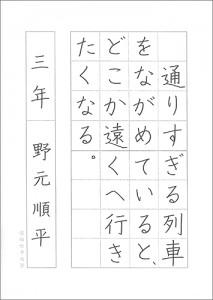 通りすぎる列車
をながめていると、
どこか遠くへ行き
たくなる。
三年 野元順平